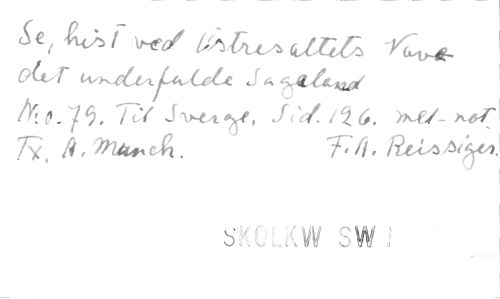 Se, hist ved Østresaltets Vove
det underfulde Sagaland
No. 79. Til Sverge. Sid. 126. mel-not
Tx. A. Munch. F.A. Reissiger.
SKOLKW SW